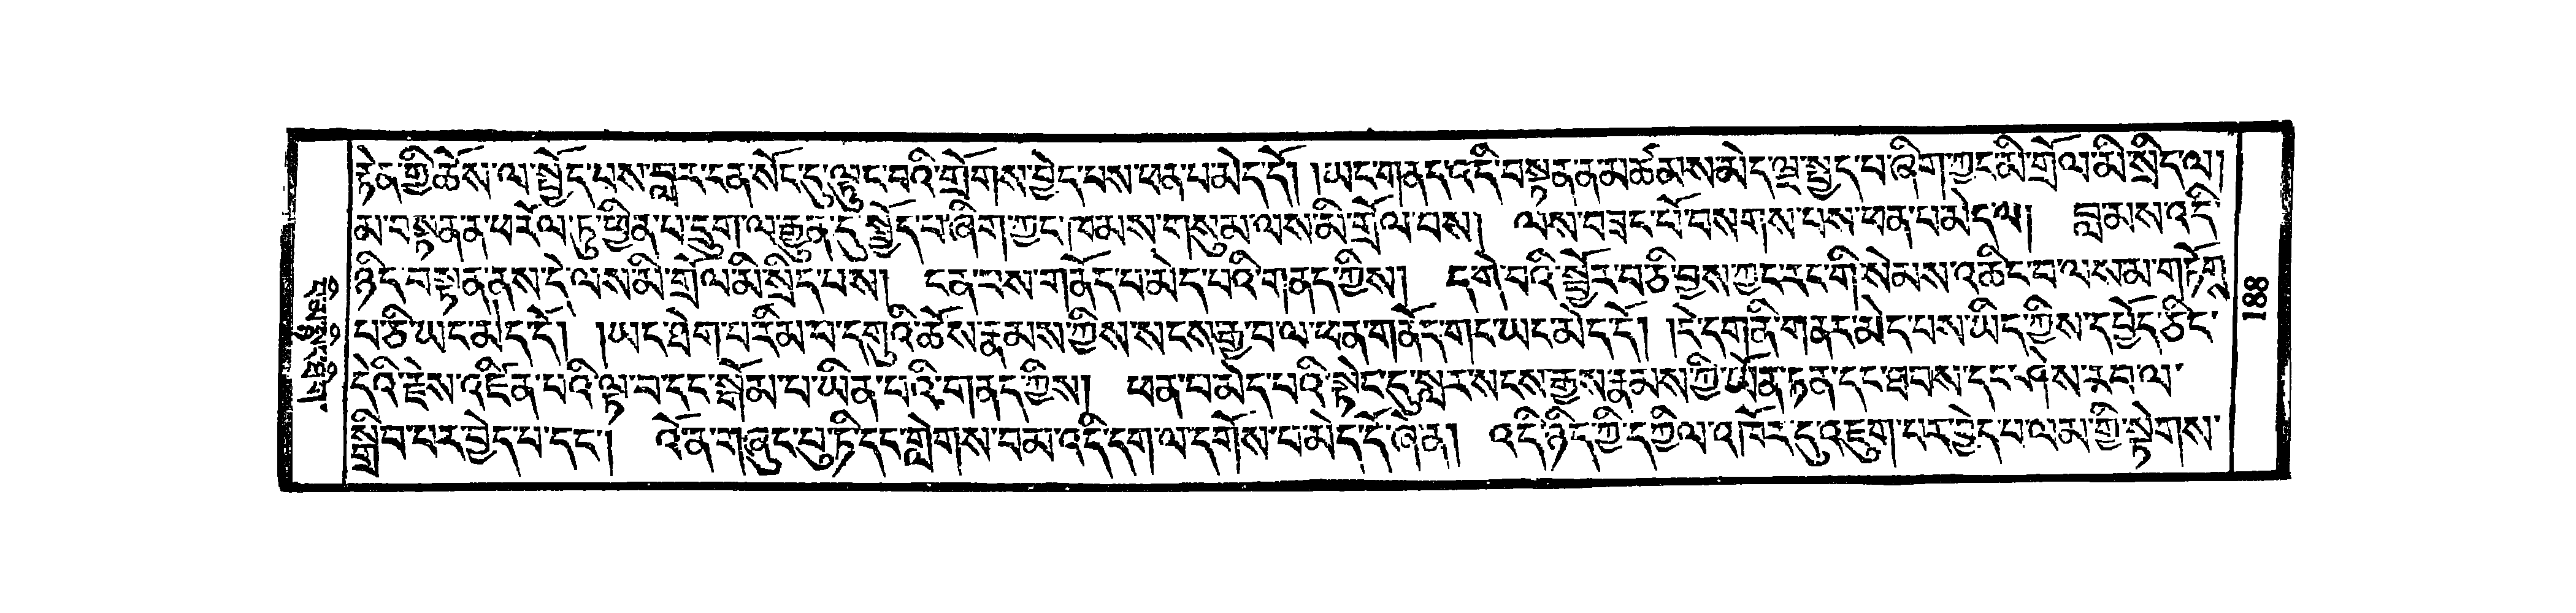 རྟེན་གྱི་ཆོས་ལ་སྤྱོད་པས་བླར་ངན་སོང་དུ་ལྟུང་བའི་གྲོགས་བྱེད་པས་ཕན་པ་མེད་དོ། །ཡང་གནད་འདི་བསྟན་ན་མཚམས་མེད་ལྔ་སྤྱད་པ་ཞིག་ཀྱང་མི་གྲོལ་མི་སྲིད་ལ།
མ་བསྟན་ན་ཕ་རོལ་ཏུ་ཕྱིན་པ་དྲུག་ལ་རྒྱུན་དུ་སྤྱོད་པ་ཞིག་ཀྱང་ཁམས་གསུམ་ལས་མི་གྲོལ་བས། ལས་བཟང་པོ་བསགས་པས་ཕན་པ་མེད་ལ། བླམས་འདི་
ཉིད་བསྟན་ནས་དེ་ལས་མི་གྲོལ་མི་སྲིད་པས། ངན་པས་གནོད་པ་མེད་པའི་གནད་ཀྱིས། དགེ་བའི་སྦྱོར་བ་ཅི་བྱས་ཀྱང་རང་གི་སེམས་འཆིང་བ་ལས་མ་གཏོགས་
པ་ཅི་ཡང་མེད་དོ། །ཡང་ཐེག་པ་རིམ་པ་དགུའི་ཆོས་རྣམས་ཀྱིས་སངས་རྒྱ་བ་ལ་ཕན་གནོད་གང་ཡང་མེད་དོ། །དེ་དག་ནི་གནད་མེད་པས་ཡིད་ཀྱིས་དཔྱོད་ཅིང་
དེའི་རྗེས་འཛིན་པའི་ལྟ་བ་དང་སྒོམ་པ་ཡིན་པའི་གནད་ཀྱིས། ཕན་པ་མེད་པའི་སྟེང་དུ་སླར་སངས་རྒྱས་རྣམས་ཀྱི་ཡོན་ཏན་དང་ཐབས་དང་ཤེས་རབ་ལ་
སྒྲིབ་པར་བྱེད་པ་དང་། འོ་ན་གཞུང་པུ་ཏི་དང་གླེགས་བམ་འདི་དག་ལ་དགོས་པ་མེད་དོ་ཞེ་ན། འདི་ཉིད་ཀྱི་དཀྱིལ་འཁོར་དུ་འཇུག་པར་བྱེད་པ་ལམ་གྱི་སྟེགས་